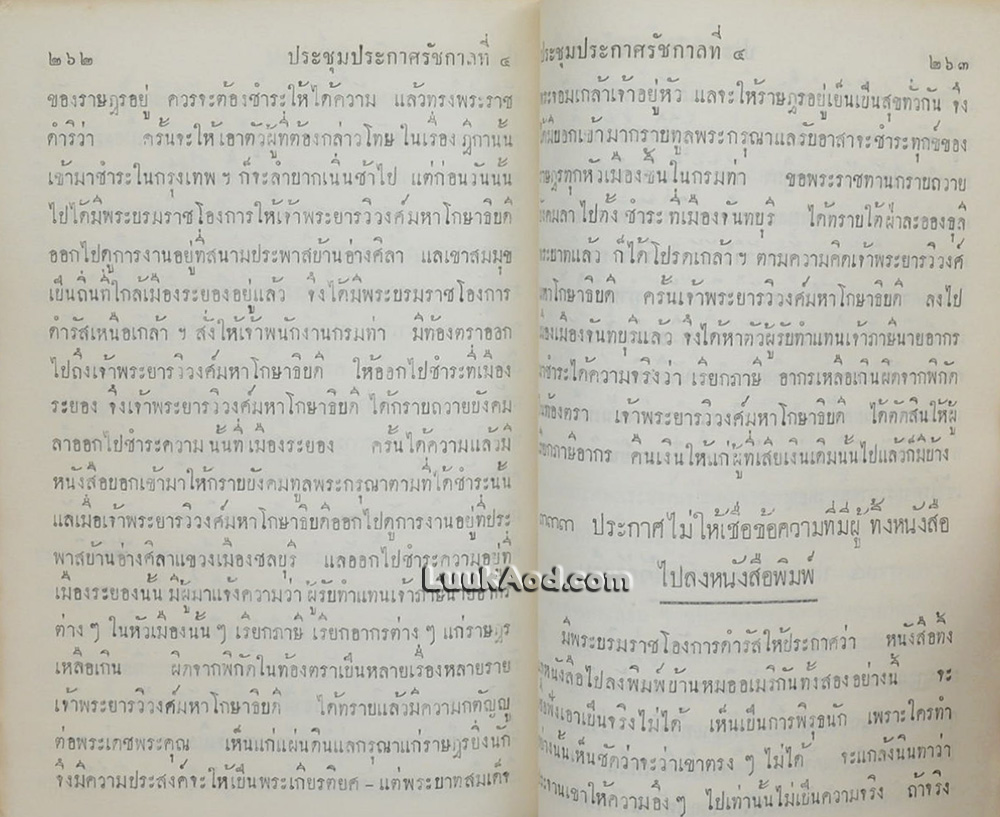 ๒๖๒ ประชุมประกาศรัชกาลที่ ๔
ของราษฎรอยู่ ควรจะต้องชำระให้ได้ความ แล้วทรงพระราช
ดำริว่า ครั้นจะให้เอาตัวผู้ที่ต้องกล่าวโทษในเรื่องฎีกานั้น
เข้ามาชำระในกรุงเทพ ฯ ก็จะลำบากเนิ่นช้าไป แต่ก่อนวันนั้น
ไปได้มีพระบรมราชโองการให้เจ้าพระยารวิวงศ์มหาโกษาธิบดี
ออกไปดูการงานอยู่ที่สนามประพาสบ้านอ่างศิลา แลเขาสมมุข
เป็นถิ่นที่ใกล้เมืองระยองอยู่แล้ว จึงได้มีพระบรมราชโองการ
ดำรัสเหนือเกล้า ฯ สั่งให้เจ้าพนักงานกรมท่า มีท้องตราออก
ไปถึงเจ้าพระยารวิวงศ์มหาโกษาธิบดี ให้ออกไปชำระที่เมือง
ระยอง จึงเจ้าพระยารวิวงศ์มหาโกษาธิบดี ได้กราบถวายบังคม
ลาออกไปชำระความนั้นที่เมืองระยอง ครั้นได้ความแล้วมี
หนังสือบอกเข้ามาให้กราบบังคมทูลพระกรุณาตามที่ได้ชำระนั้น
แลเมื่อเจ้าพระยารวิวงศ์มหาโกษาธิบดีออกไปดูการงานอยู่ที่ประ
พาสบ้านอ่างศิลาแขวงเมืองชลบุรี แลออกไปชำระความอยู่ที่
เมืองระยองนั้น มีผู้มาแจ้งความว่า ผู้รับทำแทนเจ้าภาษีนายอากร
ต่าง ๆ ในหัวเมืองนั้น ๆ เรียกภาษี เรียกอากรต่าง ๆ แก่ราษฎร
เหลือเกิน ผิดจากพิกัดในท้องตราเป็นหลายเรื่องหลายราย
เจ้าพระยารวิวงศ์มหาโกษาธิบดี ได้ทราบแล้วมีความกตัญญู
ต่อพระเดชพระคุณ เห็นแก่แผ่นดินแลกรุณาแก่ราษฎรยิ่งนัก
จึงมีความประสงค์จะให้เป็นพระเกียรติยศ – แต่พระบาทสมเด็จ
ประชุมประกาศรัชกาลที่ ๔ ๒๖๓
พระจอมเกล้าเจ้าอยู่หัว แลจะให้ราษฎรอยู่เย็นเป็นสุขทั่วกัน จึง
ได้มีบอกเข้ามากราบทูลพระกรุณาแลรับอาสาจะชำระทุกข์ของ
ราษฎรทุกหัวเมืองขึ้นในกรมท่า ขอพระราชทานกราบถวาย
บังคมลาไปตั้งชำระที่เมืองจันทบุรี ได้ทราบใต้ฝ่าละอองธุลี
พระบาทแล้ว ก็ได้โปรดเกล้า ฯ ตามความคิดเจ้าพระยารวิวงศ์
มหาโกษาธิบดี ครั้นเจ้าพระยารวิวงศ์มหาโกษาธิบดี ลงไป
เมืองจันทบุรีแล้ว จึงได้หาตัวผู้รับทำแทนเจ้าภาษีนายอากร
มาชำระได้ความจริงว่า เรียกภาษี อากรเหลือเกินผิดจากพิกัด
ในท้องตรา เจ้าพระยารวิวงศ์มหาโกษาธิบดี ได้ตัดสินให้ผู้
เรียกภาษีอากร คืนเงินให้แก่ผู้ที่เสียเงินเดิมนั้นไปแล้วก็มีบ้าง
๓๓๓ ประกาศไม่ให้เชื่อข้อความที่มีผู้ทิ้งหนังสือ
ไปลงหนังสือพิมพ์
มีพระบรมราชโองการดำรัสให้ประกาศว่า หนังสือทิ้ง
หนังสือไปลงพิมพ์บ้านหมออเมริกันทั้งสองอย่างนี้ จะ
เชื่อฟังเอาเป็นจริงไม่ได้ เห็นเป็นการพิรุธนัก เพราะใครทำ
อย่างนั้นเห็นชัดว่าจะว่าเขาตรง ๆ ไม่ได้ จะแกล้งนินทาว่า
เขาให้ความอึง ๆ ไปเท่านั้นไม่เป็นความจริง ถ้าจริง
LuukAod.com